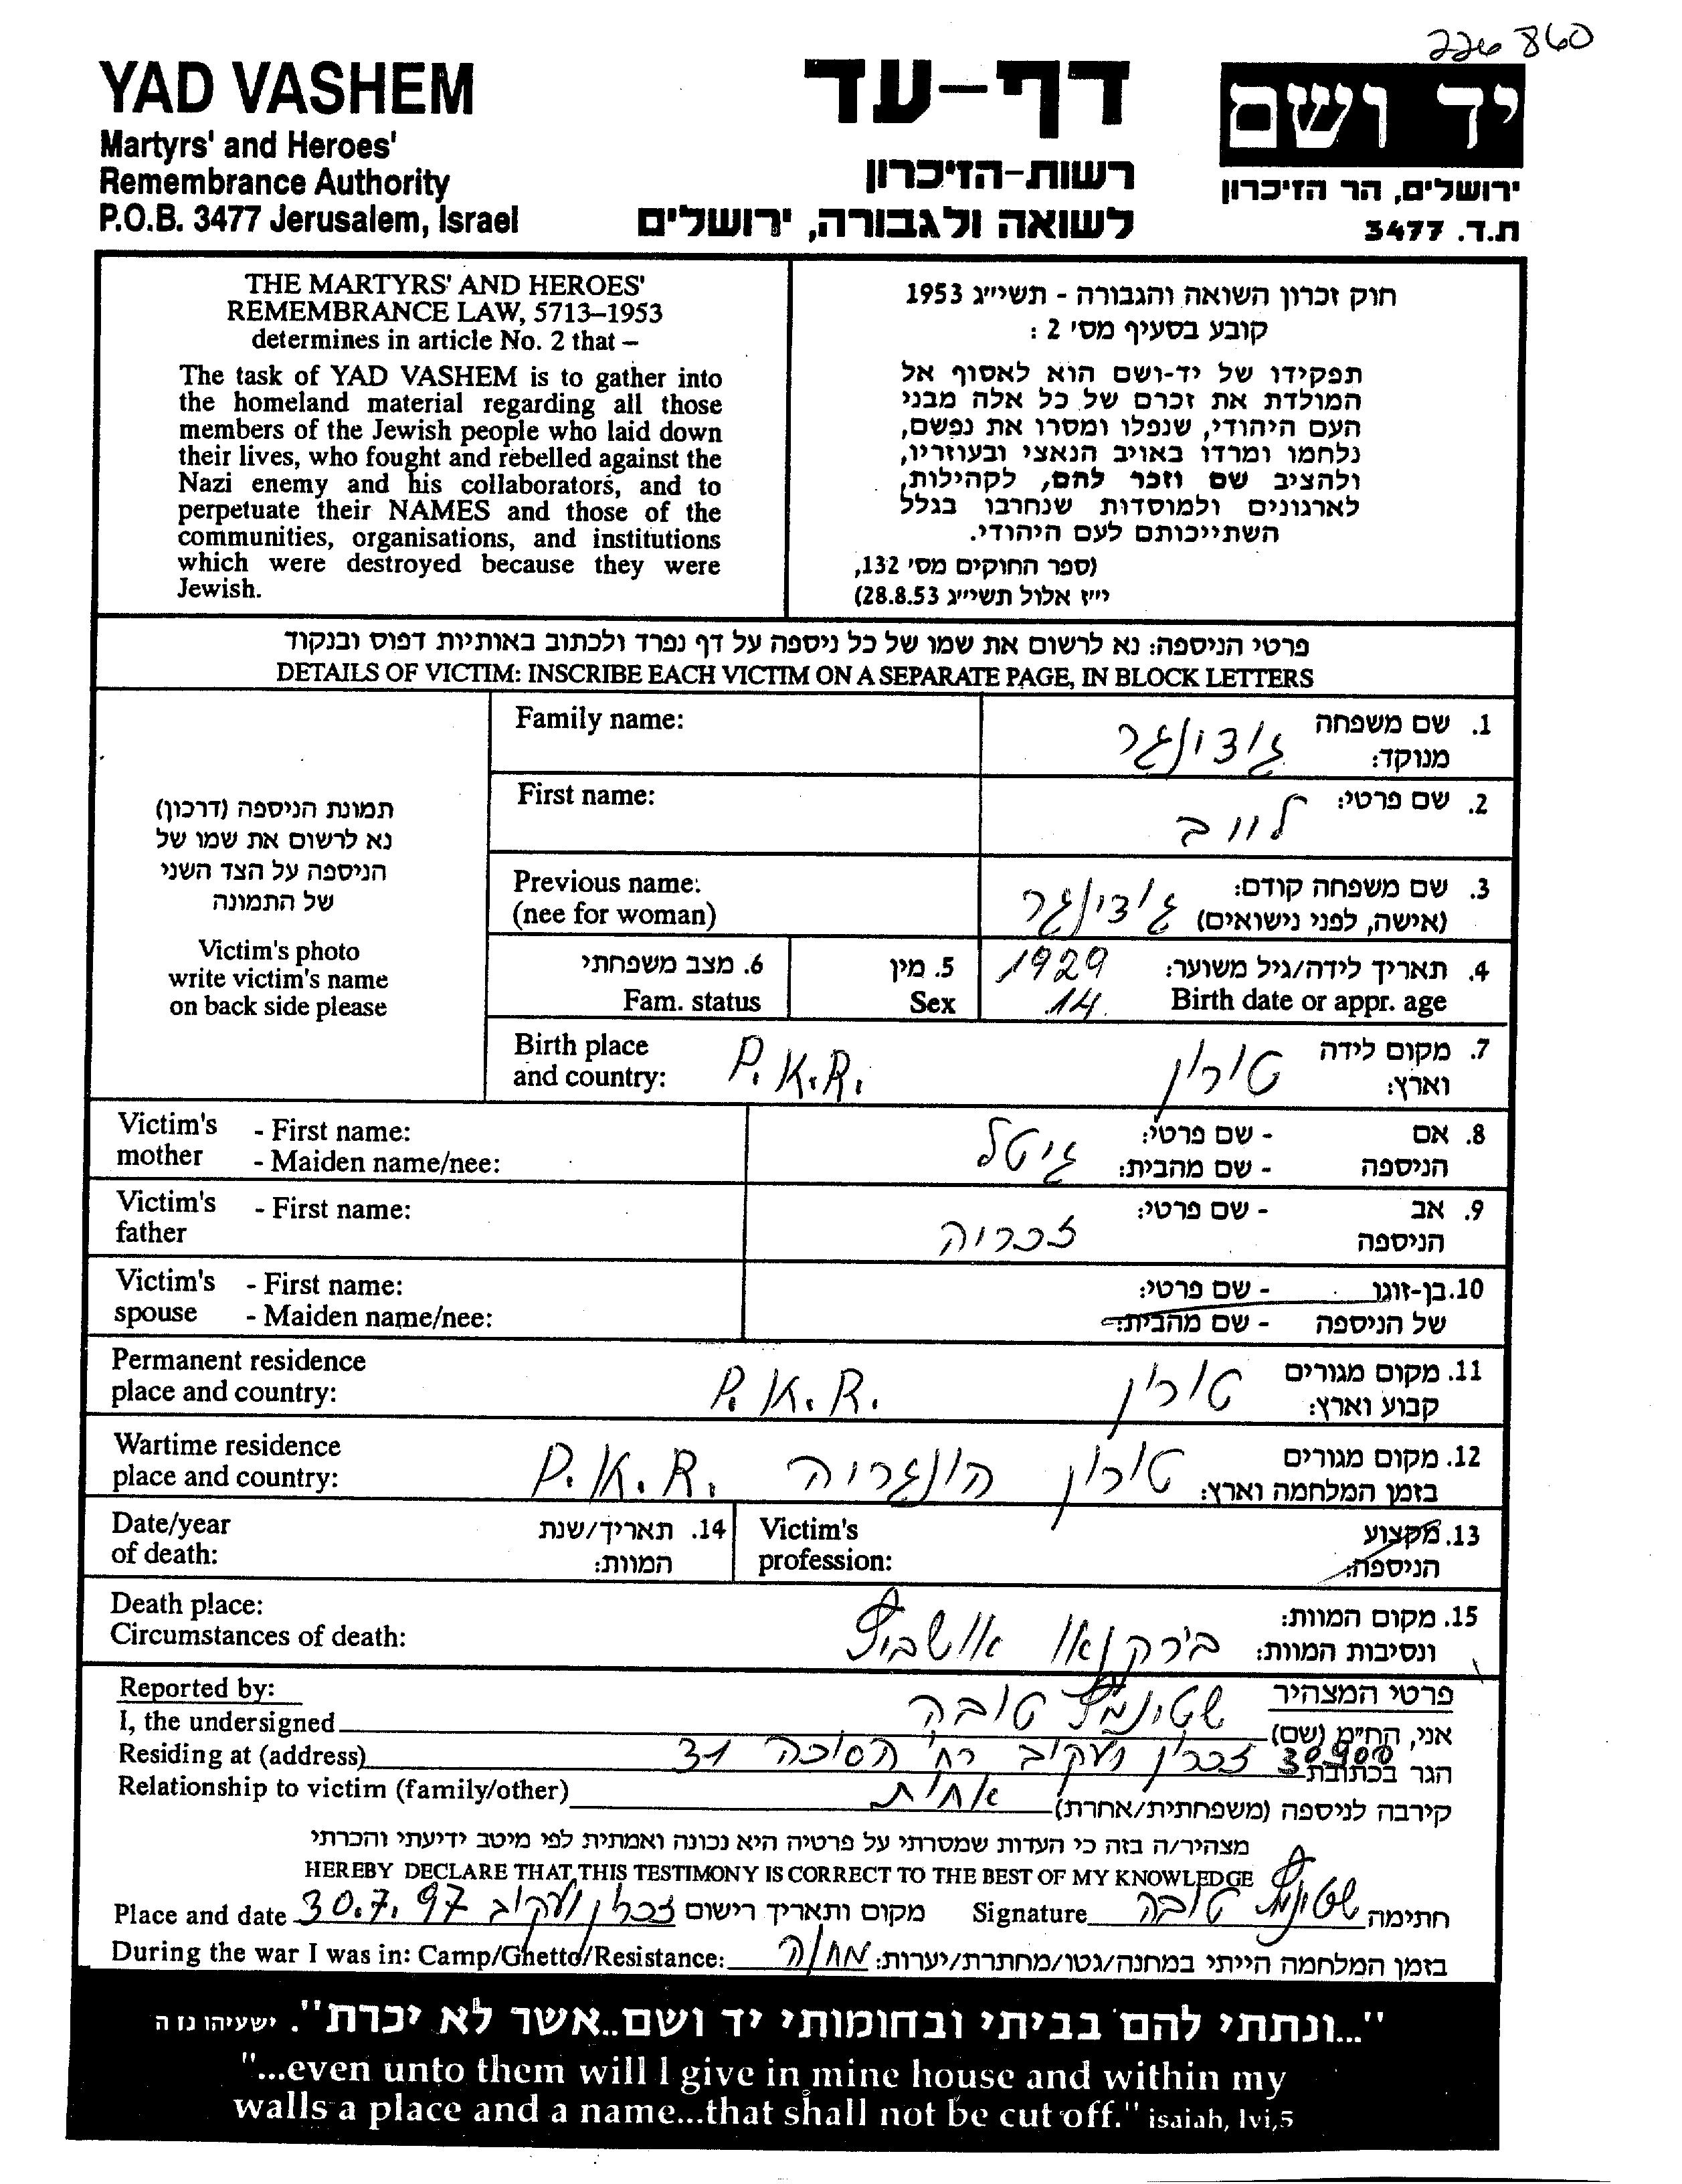 226860
YAD VASHEM
Martyrs' and Heroes'
Remembrance Authority
P.O.B. 3477 Jerusalem, Israel
דף-עד
רשות-הזיכרון
לשואה ולגבורה, ירושלים
יד ושם
ירושלים, הר הזיכרון
ת.ד. 3477
THE MARTYRS' AND HEROES'
REMEMBRANCE LAW, 5713–1953
determines in article No. 2 that –
The task of YAD VASHEM is to gather into
the homeland material regarding all those
members of the Jewish people who laid down
their lives, who fought and rebelled against the
Nazi enemy and his collaborators, and to
perpetuate their NAMES and those of the
communities, organisations, and institutions
which were destroyed because they were
Jewish.
חוק זכרון השואה והגבורה - תשי״ג 1953
קובע בסעיף מס׳ 2 :
תפקידו של יד-ושם הוא לאסוף אל
המולדת את זכרם של כל אלה מבני
העם היהודי, שנפלו ומסרו את נפשם,
נלחמו ומרדו באויב הנאצי ובעוזריו,
ולהציב שם וזכר להם, לקהילות,
לארגונים ולמוסדות שנחרבו בגלל
השתייכותם לעם היהודי.
(ספר החוקים מס׳ 132,
י״ז אלול תשי״ג 28.8.53)
פרטי הניספה: נא לרשום את שמו של כל ניספה על דף נפרד ולכתוב באותיות דפוס ובנקוד
DETAILS OF VICTIM: INSCRIBE EACH VICTIM ON A SEPARATE PAGE, IN BLOCK LETTERS
תמונת הניספה (דרכון)
נא לרשום את שמו של
הניספה על הצד השני
של התמונה
Victim's photo
write victim's name
on back side please
Family name: גיצונגר 1. שם משפחה
מנוקד:
First name: לווב 2. שם פרטי:
Previous name: גיצינגר 3. שם משפחה קודם:
(nee for woman) (אישה, לפני נישואים)
6. מצב משפחתי 5. מין 1929 4. תאריך לידה/גיל משוער:
Fam. status Sex 14. Birth date or appr. age
Birth place P.K.R. טורין 7. מקום לידה
and country: וארץ:
Victim's - First name: גיטל - שם פרטי: 8. אם
mother - Maiden name/nee: - שם מהבית: הניספה
Victim's - First name: זכריה - שם פרטי: 9. אב
father הניספה
Victim's - First name: - שם פרטי: 10. בן-זוגו
spouse - Maiden name/nee: - שם מהבית: של הניספה
Permanent residence P.K.R. טורין 11. מקום מגורים
place and country: קבוע וארץ:
Wartime residence P.K.R. הונגריה טורין 12. מקום מגורים
place and country: בזמן המלחמה וארץ:
Date/year 14. תאריך/שנת Victim's 13. מקצוע
of death: המוות: profession: הניספה:
Death place: בירקנאו אושביץ 15. מקום המוות:
Circumstances of death: ונסיבות המוות:
Reported by: פרטי המצהיר
I, the undersigned שטינמץ טובה אני, הח״מ (שם)
Residing at (address) 30900 זכרון יעקוב רח' הסוכה 31 הגר בכתובת
Relationship to victim (family/other) אחות קירבה לניספה (משפחתית/אחרת)
מצהיר/ה בזה כי העדות שמסרתי על פרטיה היא נכונה ואמתית לפי מיטב ידיעתי והכרתי
HEREBY DECLARE THAT THIS TESTIMONY IS CORRECT TO THE BEST OF MY KNOWLEDGE
Place and date 30.7.97 זכרון יעקוב מקום ותאריך רישום Signature שטינמץ טובה חתימה
During the war I was in: Camp/Ghetto/Resistance: מחנה בזמן המלחמה הייתי במחנה/גטו/מחתרת/יערות:
"...ונתתי להם בביתי ובחומותי יד ושם..אשר לא יכרת". ישעיהו נז ה
"...even unto them will I give in mine house and within my
walls a place and a name...that shall not be cut off." isaiah, lvi,5